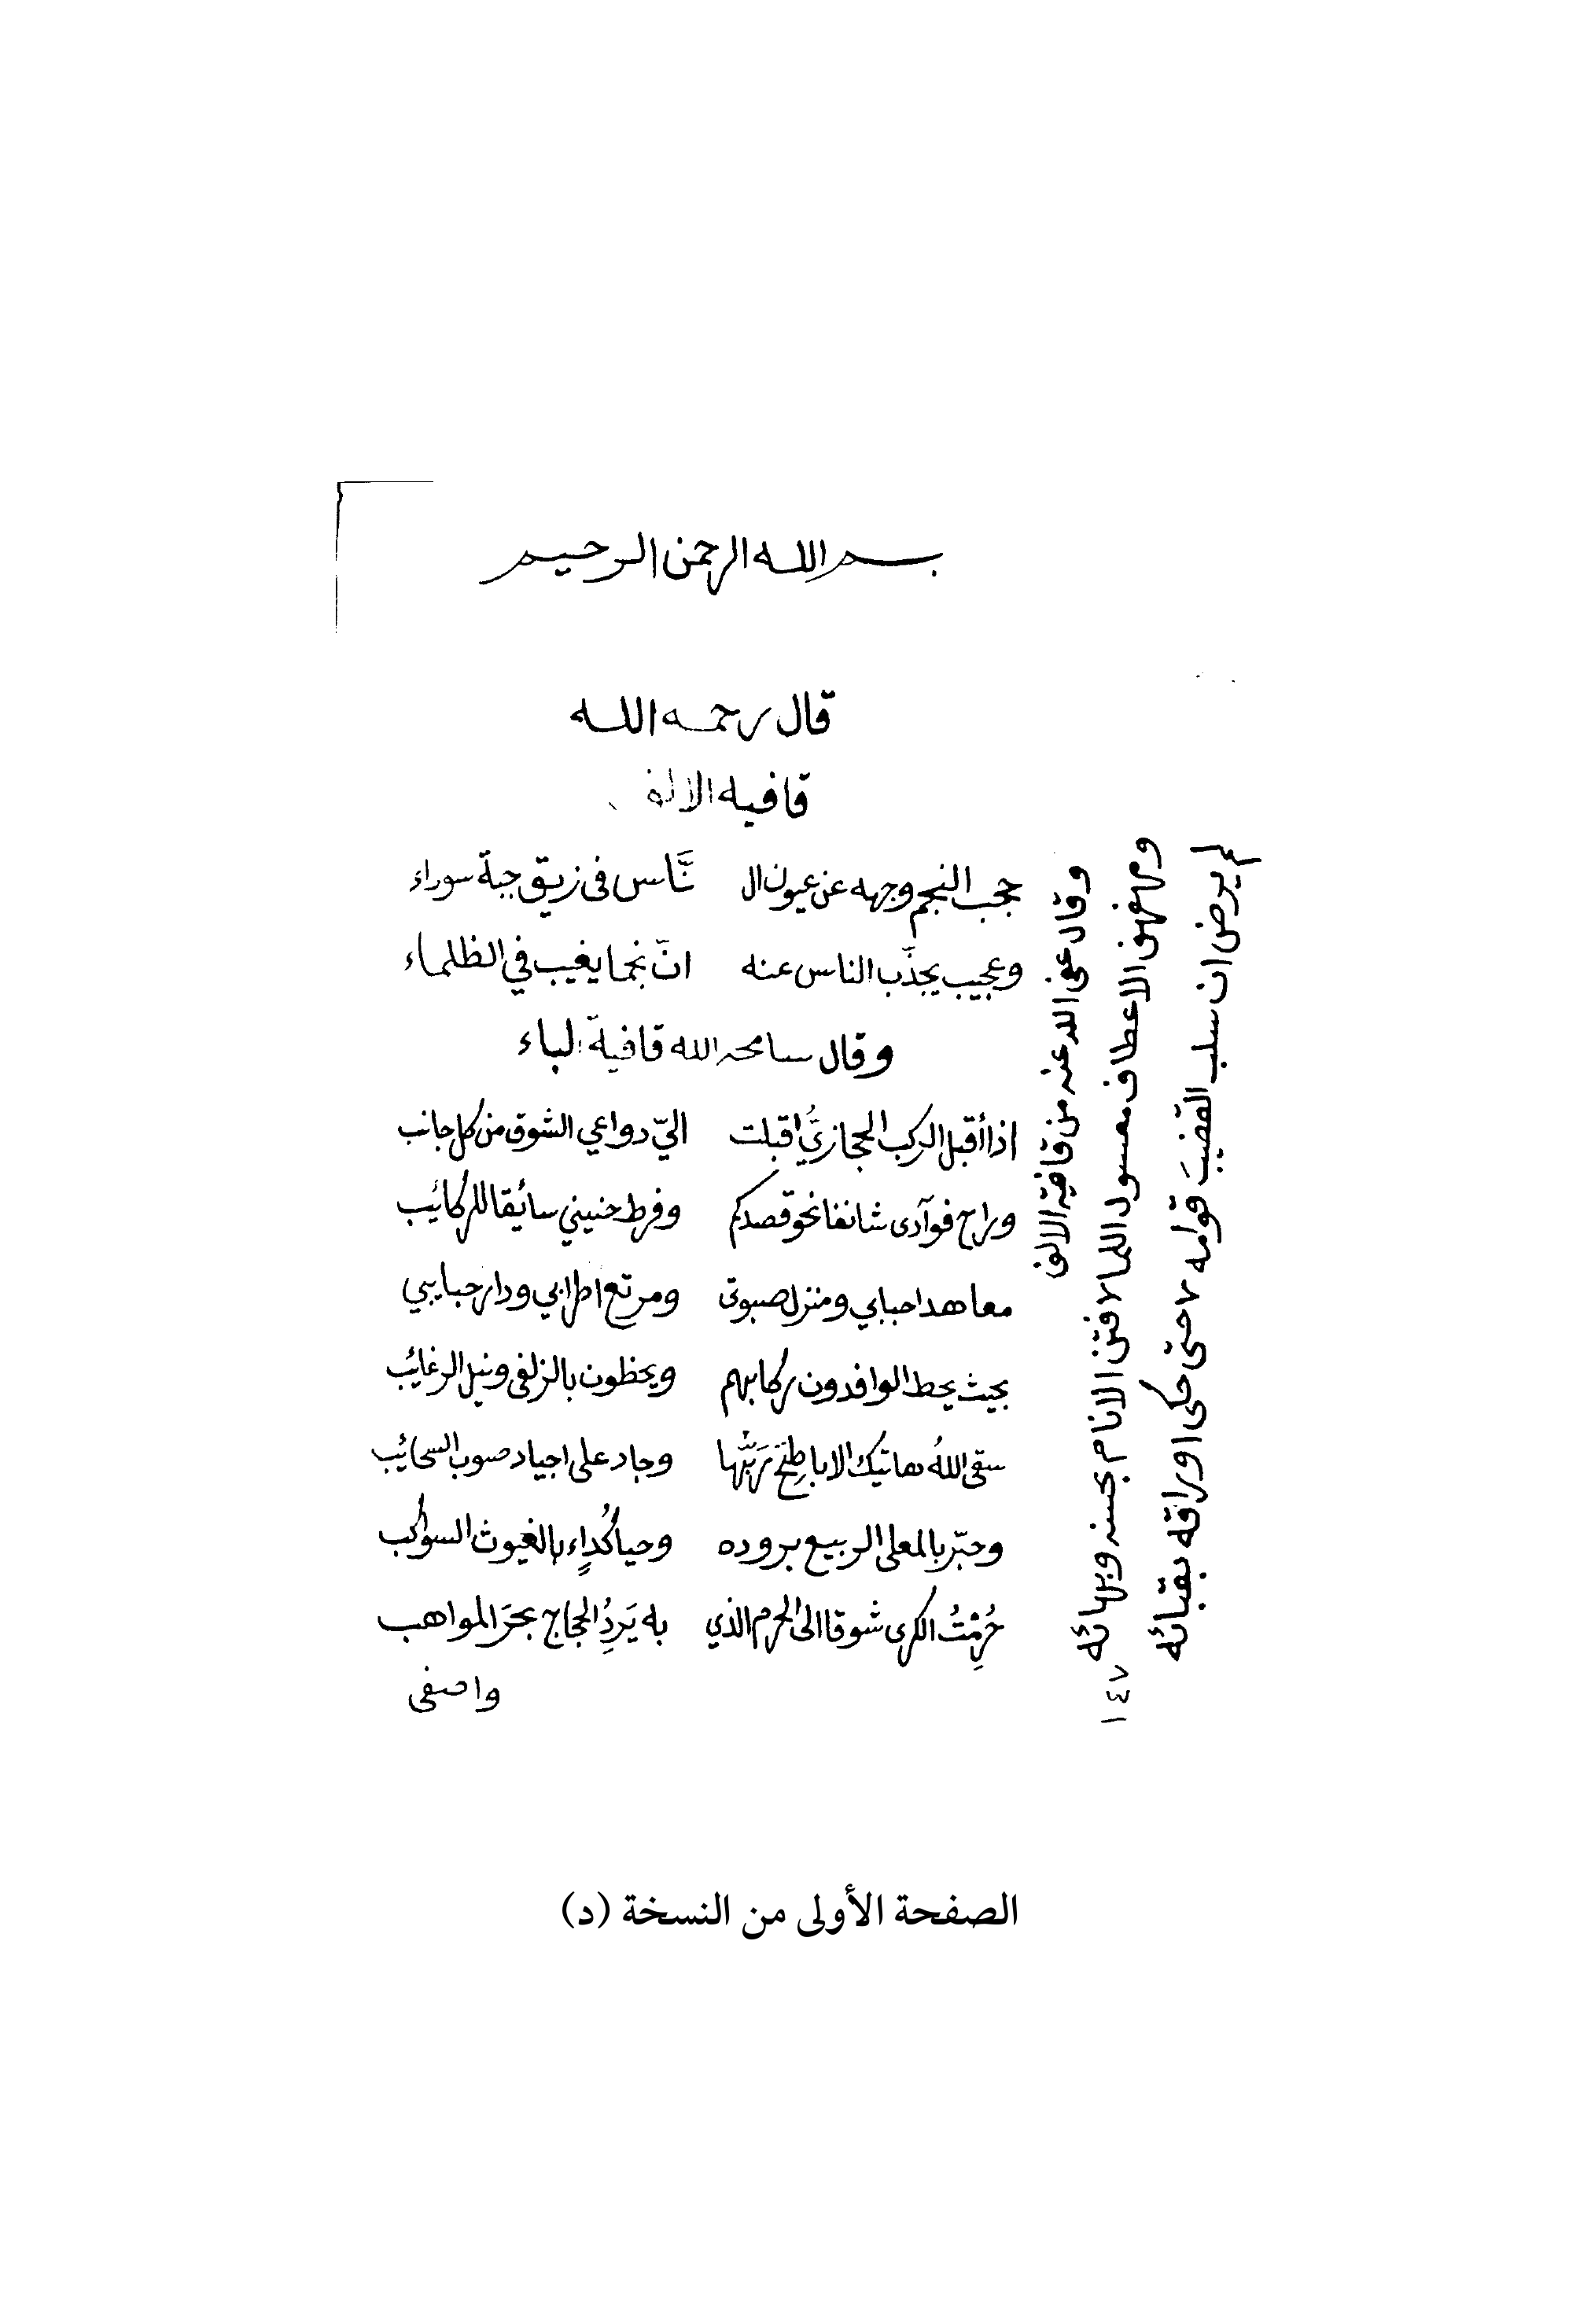 بسم الله الرحمن الرحيم
قال رحمه الله
قافيه الالف
حجب النجم وجهه عن عيون ال نَّاس في زيق جبة سوراء
وعجيب يجذّب الناس عنه انّ نجما يغيب في الظلماء
وقال سامحه الله قافية الباء
اذا أقبل الركب الحجازيُّ اقبلت اليّ دواعي الشوق من كل جانب
وراح فوآدى شانغا نحو قصدكم وفرط حنيني سائقا للركائب
معاهد احبابي ومنزل صبوتى ومرتع اطرابي ودار حبايبي
بحيث يحط الوافدون ركابهم ويحظون بالزلفى ونيل الرغائب
سقى اللهُ هاتيك الاباطِحَ تربَها وجاد على اجياد صوب السحائب
وحبّر بالمعلى الربيع بروده وحيا كُداءٍ بالغيوث السواكب
حُرِمْتُ الكرى شوقا الى الحرم الذي به يَرِدُ الحجاج بحرَ المواهب
واصفى
وقال عفى الله عنه من قافية الالف
ومهفهف الاعطاف معسول اللما ٧ فتن الانام بحسنه وبهائه
لم يرض ان سلب القضيبَ قوامه ٧ حتى حكى اوراقه بقبائه
١٤٧
الصفحة الأولى من النسخة (د)